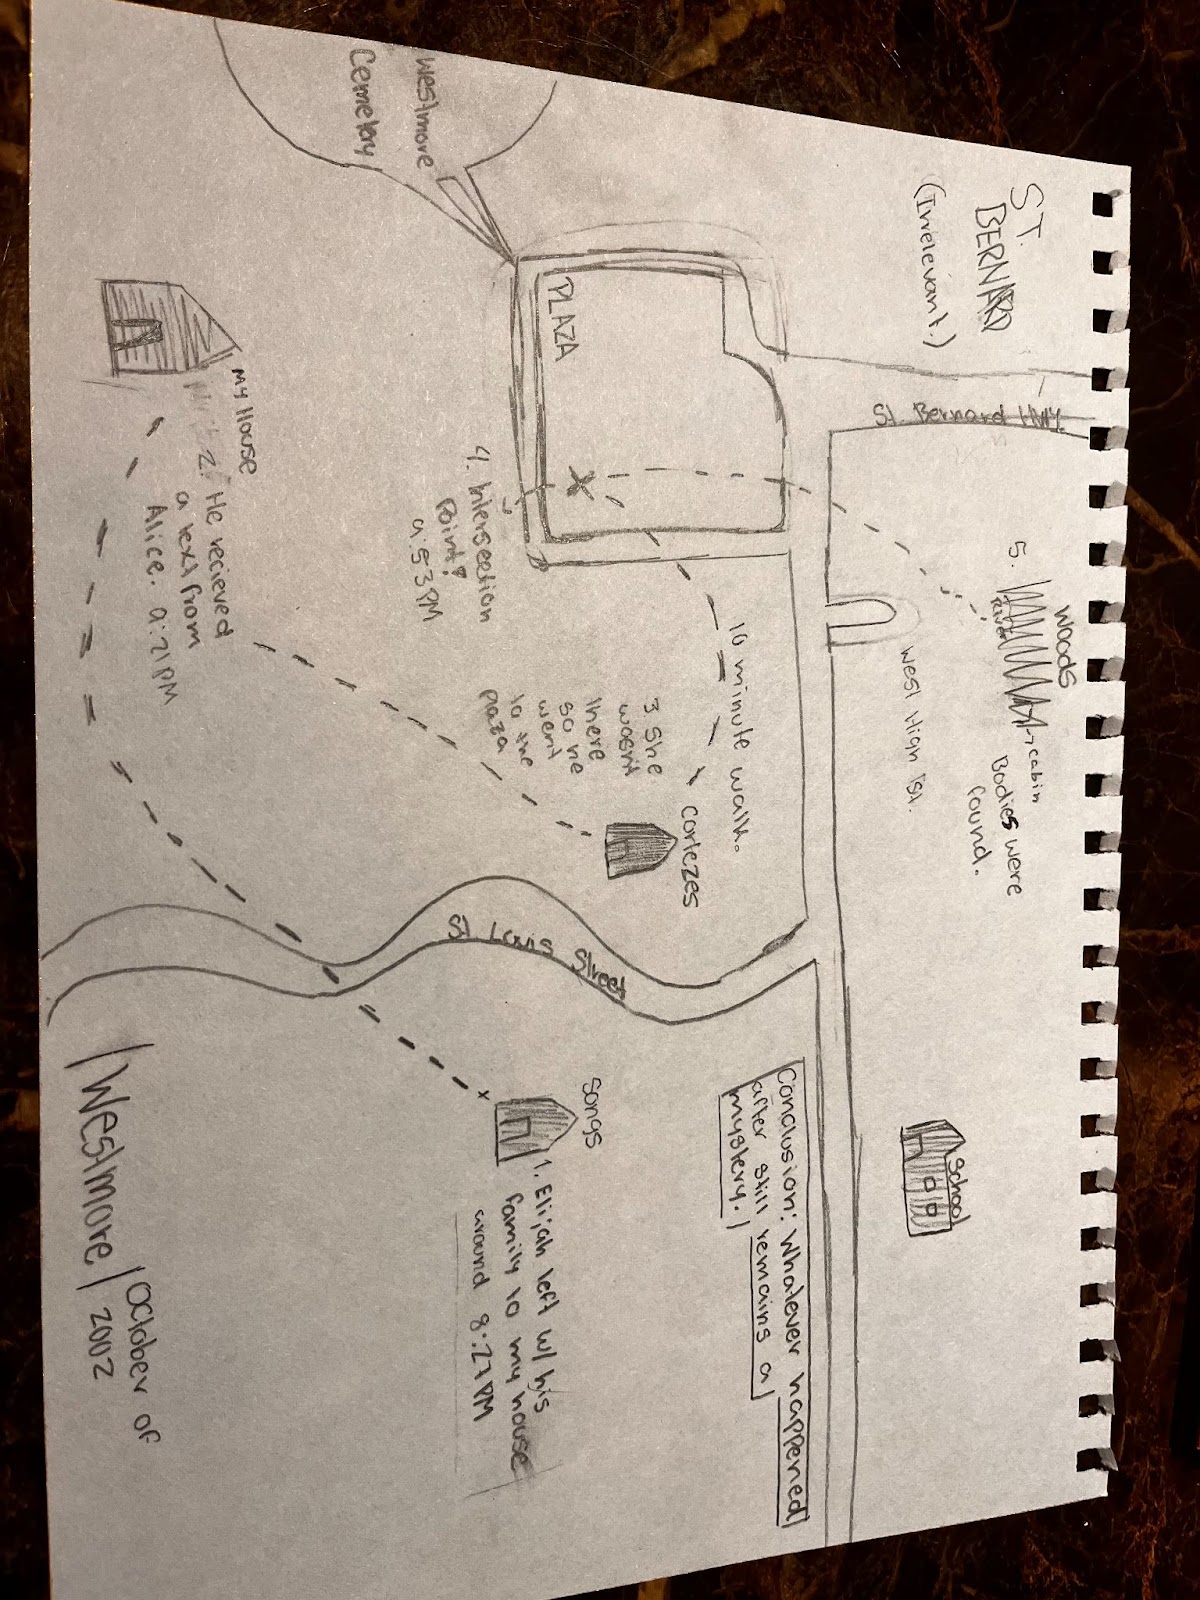 ST.
BERNARD
(Irrelevant.)
St. Bernard HWY.
Woods
5.
River
→cabin
Bodies were
found.
West High St.
School
Westmore
Cemetery
PLAZA
X
4. Intersection
Point?
9:53 PM
10 minute walk.
3. She
wasn't
there
so he
went
to the
plaza
Cortezes
My House
2. He recieved
a text from
Alice. 9:21 PM
St Louis Street
Conclusion: Whatever happened
after still remains a
mystery.
Songs
x
1. Elijah left w/ his
family to my house
around 8:27 PM
|Westmore|
October of
2002